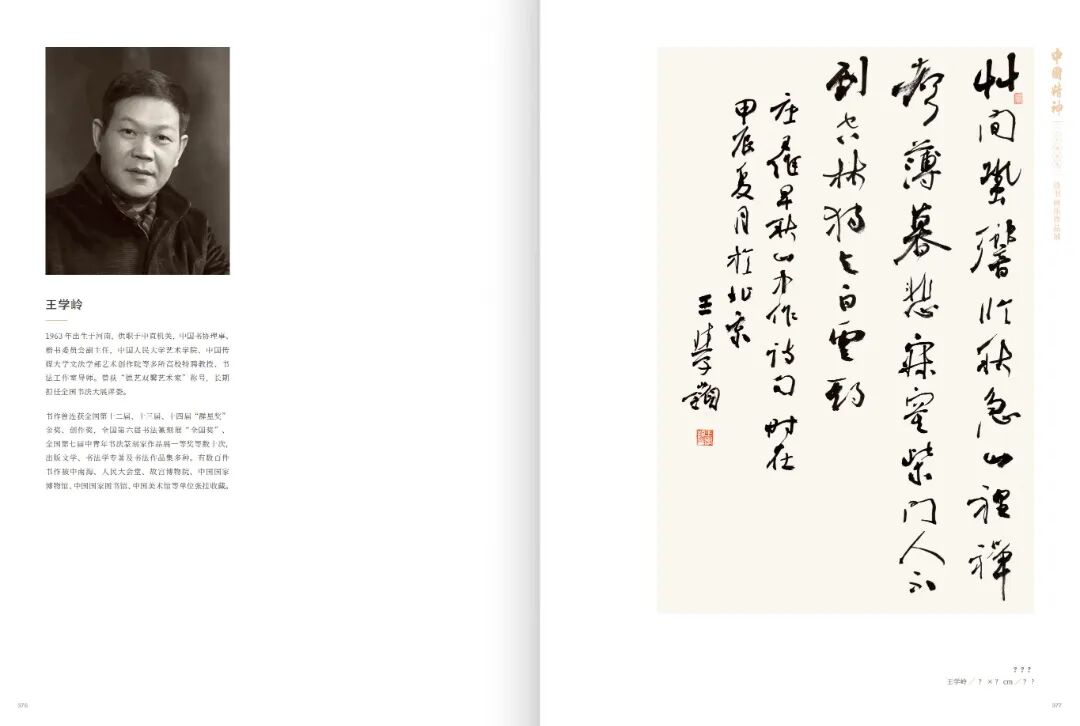 王学岭
1963年出生于河南，供职于中直机关，中国书协理事、
楷书委员会副主任，中国人民大学艺术学院、中国传
媒大学文法学部艺术创作院等多所高校特聘教授、书
法工作室导师。曾获“德艺双馨艺术家”称号，长期
担任全国书法大展评委。
书作曾连获全国第十二届、十三届、十四届“群星奖”
金奖、创作奖，全国第六届书法篆刻展“全国奖”、
全国第七届中青年书法篆刻家作品展一等奖等数十次，
出版文学、书法学专著及书法作品集多种。有数百件
书作被中南海、人民大会堂、故宫博物院、中国国家
博物馆、中国国家图书馆、中国美术馆等单位张挂收藏。
376
中國精神
艸间蛩響临秋急山裡蟬
聲薄暮悲寂寞柴门人不
到空林独与白雲期
王維早秋山中作诗句时在
甲辰夏月於北京
王學嶺
? ? ?
王学岭 / ? × ? cm / ? ?
377